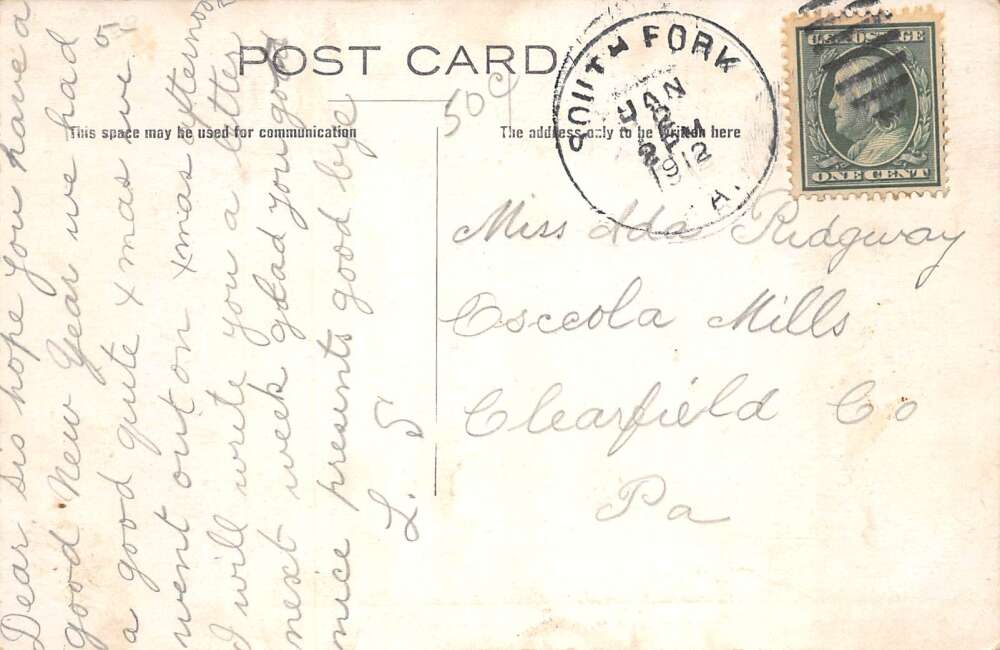 POST CARD
This space may be used for communication
The address only to be written here
50¢
SOUTH FORK
JAN
2 PM
1912
A.
U.S. POSTAGE
ONE CENT
Miss Ada Ridgway
Osceola Mills
Clearfield Co
Pa
Dear sis hope you have a
good New Year we had
a good quite xmas we
went out on xmas afternoon
I will write you a letter
next week glad you got
nice presunts good bye
L. S